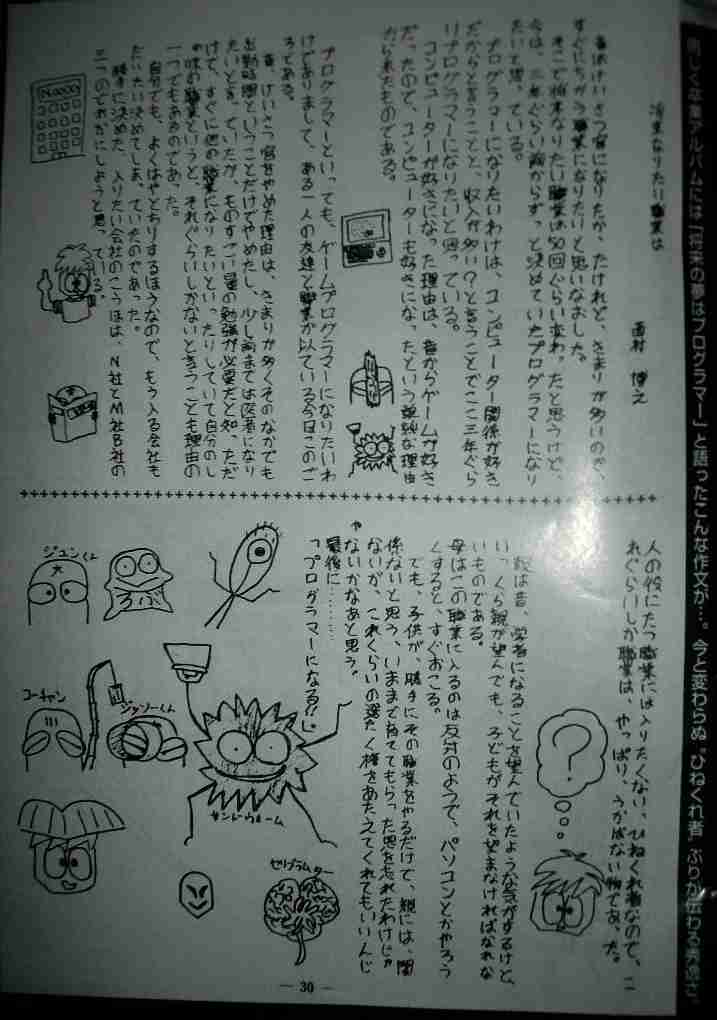 将来なりたい職業は
西村 博之
昔はけいさつ官になりたか、たけれど、きまりが多いのが、
すぐにちがう職業になりたいと思いなおした。
そこで将来なりたい職業は50回ぐらい変わ、たと思うけど、
今は、三年ぐらい前からず、と決めていたプログラマーになり
たいと思、ている。
プログラマーになりたいわけは、コンピューター関係が好き
だからと言うことと、収入が多い?と言うことでここ三年ぐら
いプログラマーになりたいと思っている。
コンピューターが好きにな、た理由は、昔からゲームが好き
だ、たので、コンピューターも好きにな、たという単純な理由
から来たものである。
プログラマーといっても、ゲームプログラマーになりたいわ
けでありまして、ある一人の友達と職業が似ている今日このご
ろである。
昔、けいさつ官をやめた理由は、きまりが多くそのなかでも
出勤時間ということだけでやめたし、少し前までは医者になり
たいとき、ていたが、ものすごい量の勉強が必要だと知、ただ
けで、すぐに他の職業になりたいとい、たりしていて自分のし
ゅ味の職業というと、それぐらいしかないと言うことも理由の
一つでもあるのであ、た。
自分でも、よくはやとちりするほうなので、もう入る会社も
だいたい決めてしま、ていたのであ、た。
勝手に決めた、入りたい会社のこうほは、N社とM社B社の
三つのどれかにしようと思、ている。
人の役にたつ職業には入りたくない、ひねくれ者なので、こ
れぐらいしか職業は、やっぱり、うかばない物であ、た。
親は昔、学者になることを望んでいたような気がするけど、
い、くら親が望んでも、子どもがそれを望まなければなれな
いものである。
母はこの職業に入るのは反対のようで、パソコンとかやろう
とすると、すぐおこる。
でも、子供が、勝手にその職業をやるだけで、親には、関
係ないと思う、いままで育ててもらった恩を忘れたわけじゃ
ないが、これくらいの選たく権をあたえてくれてもいいんじ
ゃないかなあと思う。
最後に………
「プログラマーになる!!」
?
ジュンくん
大
ろぶ
コーチャン
ジッソーくん
サントウホーム
セリブラムター
— 30 —
卒業アルバムには「将来の夢はプログラマー」と語ったこんな作文が…。今と変わらぬ“ひねくれ者”ぶりが伝わる